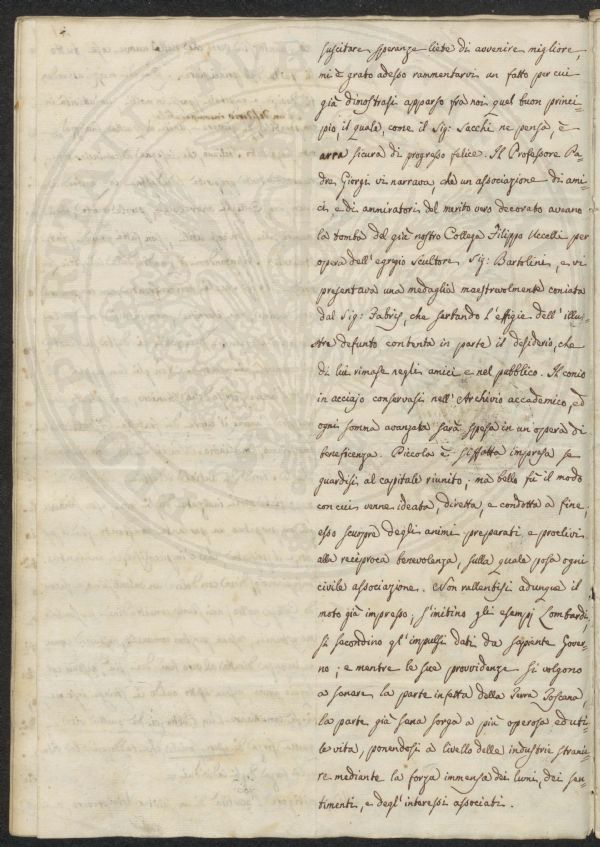 suscitare speranze liete di avvenire migliore,
mi è grato adesso rammentarvi un fatto per cui
già dimostrasi apparso fra noi quel buon princi=
pio, il quale, come il Sig: Sacchi ne pensa, è
arra sicura di progresso felice. Il Professore Pa=
dre Giorgi vi narrava che un associazione di ami=
ci e di ammiratori del merito vero decorato aveano
la tomba del già nostro Collega Filippo Uccelli per
opera dell'egregio scultore Sig: Bartolini, e vi
presentava una medaglia maestrevolmente coniata
dal Sig: Fabris, che serbando l'effigie dell'illu=
stre defunto contenta in parte il desiderio, che
di lui rimase negli amici e nel pubblico. Il conio
in acciajo conservasi nell'Archivio accademico, ed
ogni somma avanzata sarà spesa in un opera di
beneficenza. Piccola è siffatta impresa se
guardisi al capitale riunito; ma bello fù il modo
con cui venne ideata, diretta, e condotta a fine,
esso scuopre degli animi preparati e proclivi
alla reciproca benevolenza, sulla quale posa ogni
civile associazione. Non rallentisi adunque il
moto già impresso; s'imitino gli esempj Lombardi,
si secondino gl'impulsi dati da sapiente Gover=
no; e mentre le sue provvidenze si volgono
a sanare la parte infetta della Terra Toscana,
la parte già sana sorga a più operosa ed uti=
le vita, ponendosi a livello delle industrie stranie=
re mediante la forza immensa dei lumi, dei sen=
timenti, e degl'interessi associati.